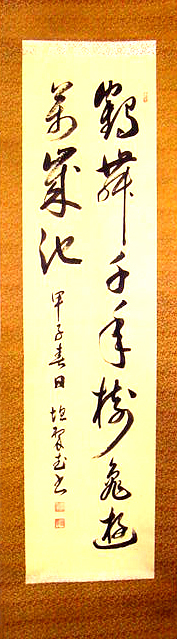 鶴舞千年樹亀遊
萬歳池
甲子春日
書